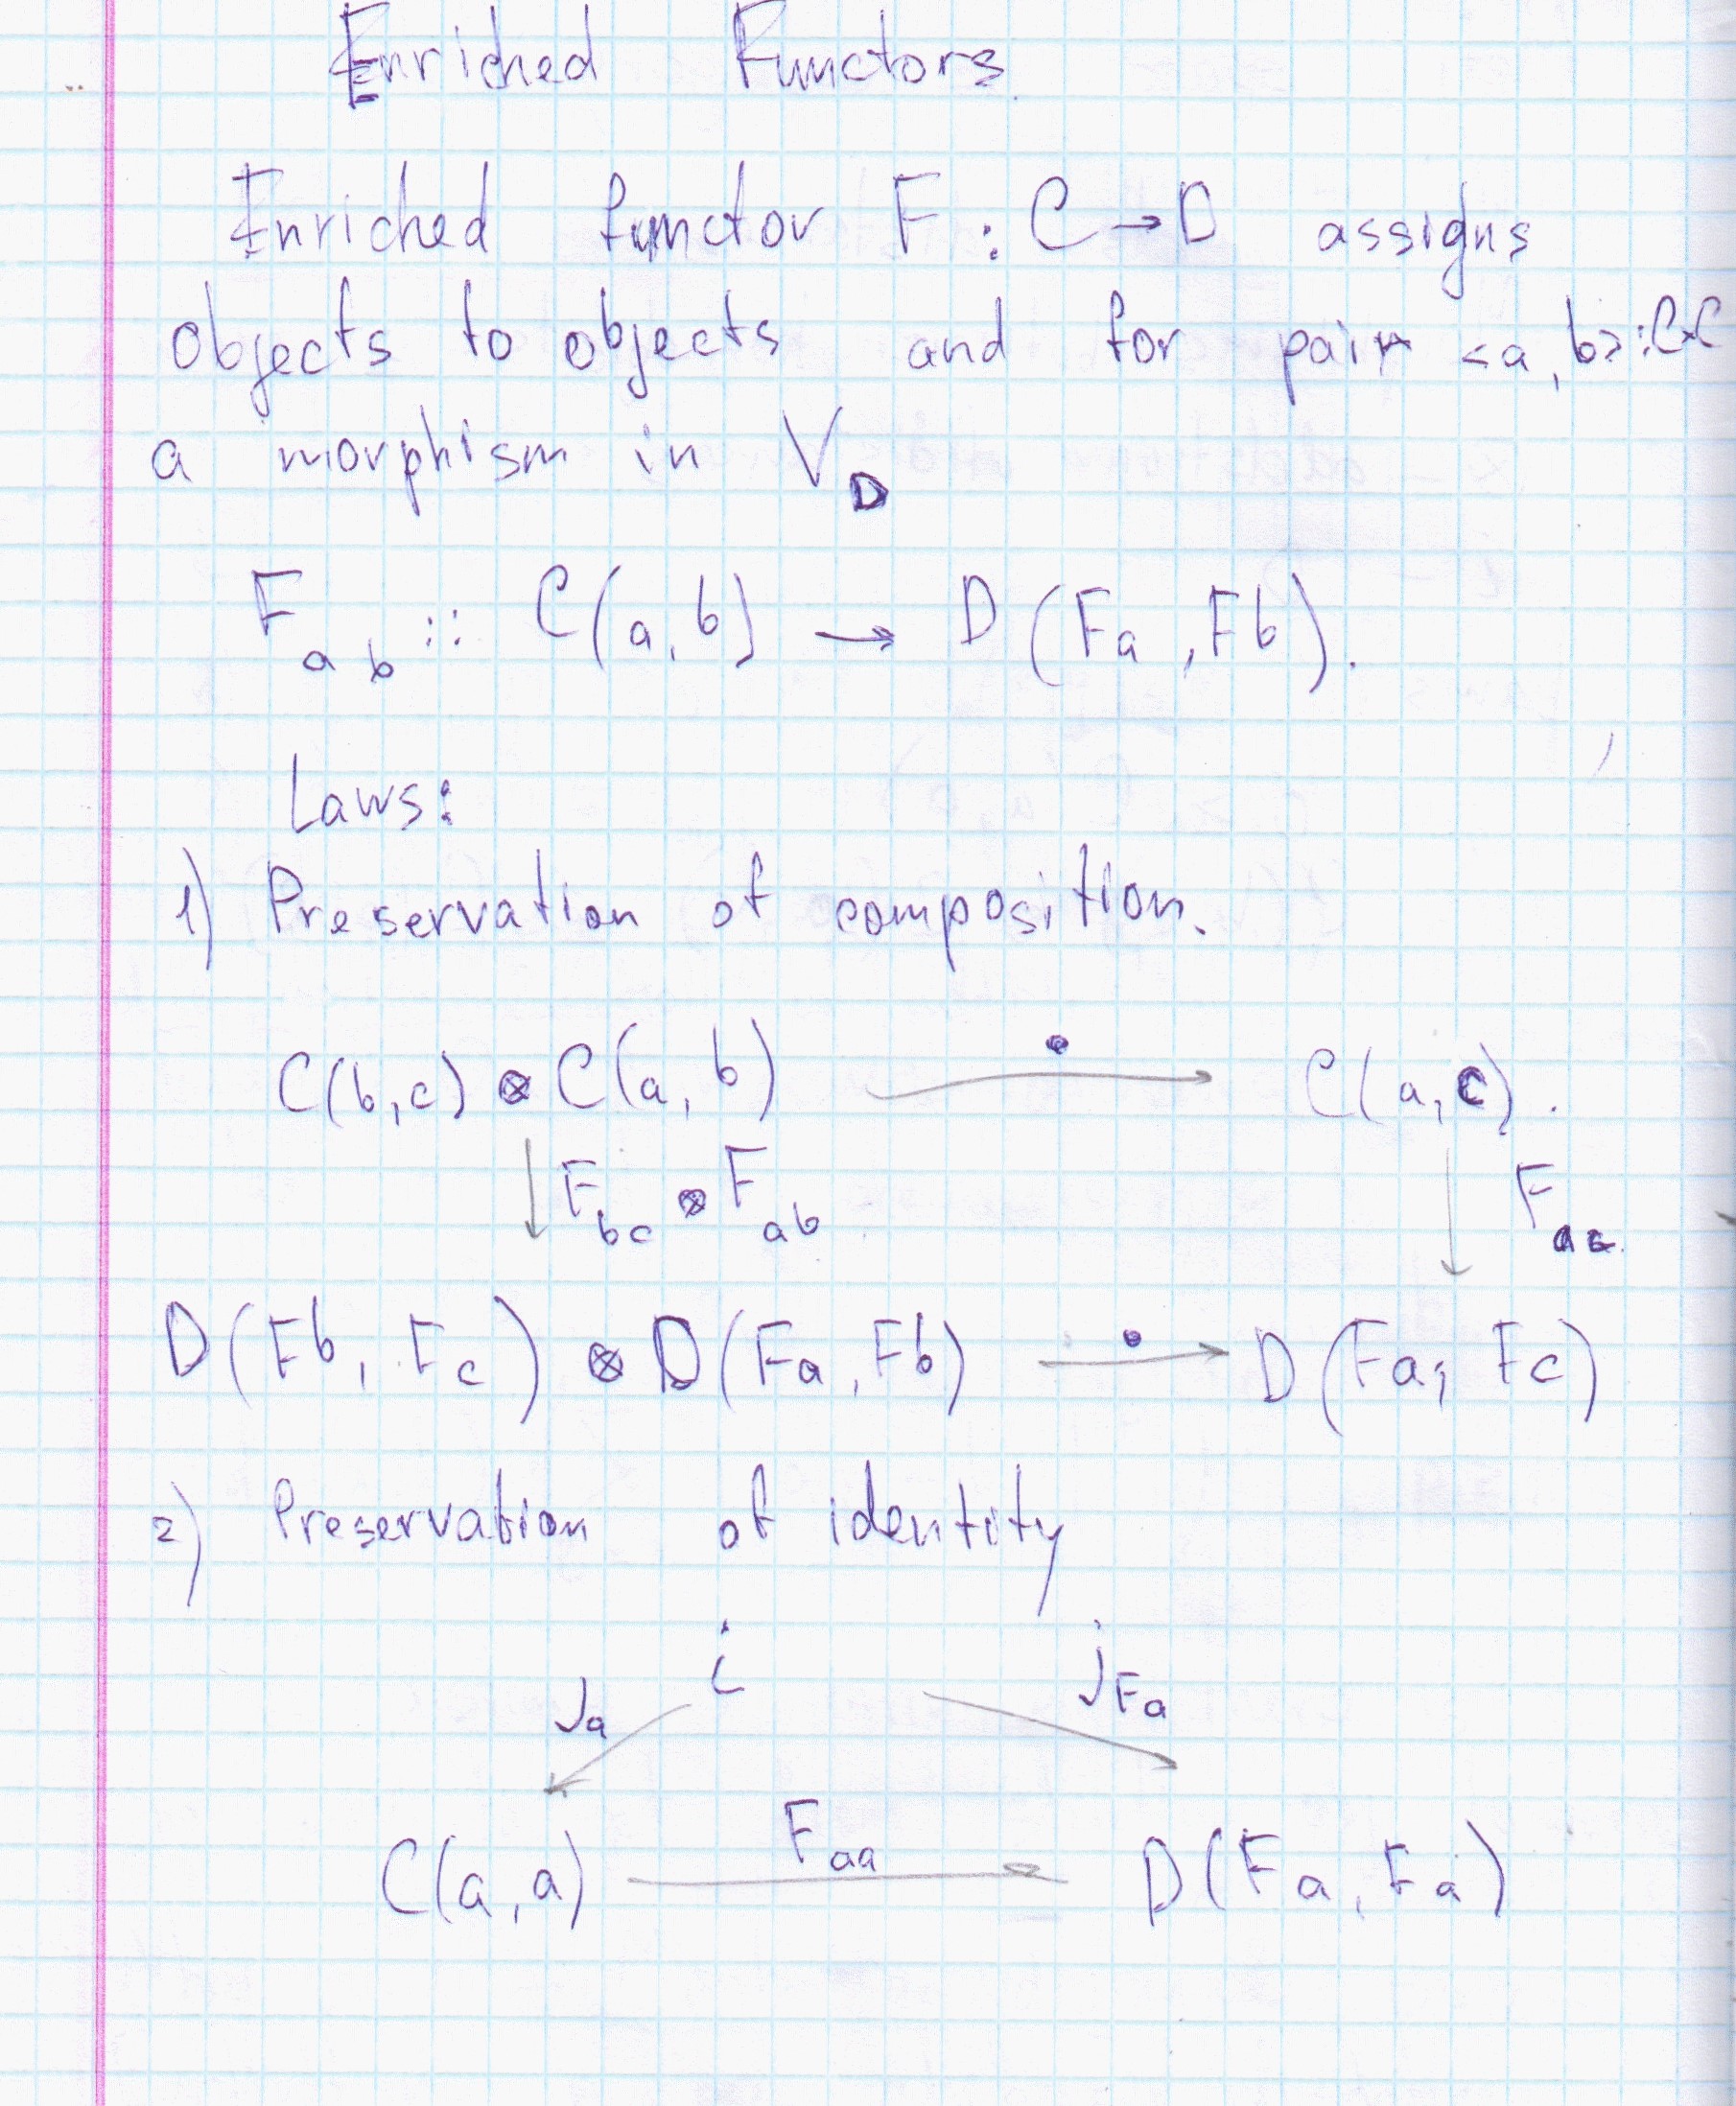 Enriched Functors.
Enriched functor F : C → D assigns
objects to objects and for pair <a, b>::C×C
a morphism in V_D
F_ab :: C(a, b) → D(Fa, Fb).
Laws:
1) Preservation of composition.
C(b,c) ⊗ C(a, b) ∘ → C(a, c).
↓ F_bc ⊗ F_ab ↓ F_ac
D(Fb, Fc) ⊗ D(Fa, Fb) ∘ → D(Fa, Fc)
2) Preservation of identity
i
J_a j_Fa
F_aa
C(a, a) → D(Fa, Fa)